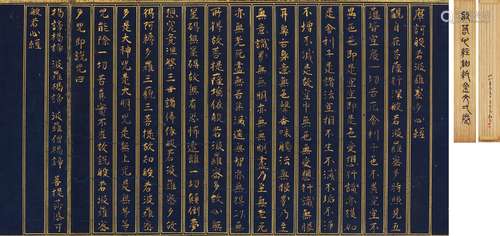 摩訶般若波羅蜜多心經
觀自在菩薩行深般若波羅蜜多時照見五
蘊皆空度一切苦厄舍利子色不異空空不
異色色即是空空即是色受想行識亦復如
是舍利子是諸法空相不生不滅不垢不淨
不增不減是故空中無色無受想行識無眼
耳鼻舌身意無色聲香味觸法無眼界乃至
無意識界無無明亦無無明盡乃至無老死
亦無老死盡無苦集滅道無智亦無得以無
所得故菩提薩埵依般若波羅蜜多故心無
罣礙無罣礙故無有恐怖遠離一切顛倒夢
想究竟涅槃三世諸佛依般若波羅蜜多故
得阿耨多羅三藐三菩提故知般若波羅蜜
多是大神咒是大明咒是無上咒是無等等
咒能除一切苦真實不虛故說般若波羅蜜
多咒即說咒曰
揭諦揭諦 波羅揭諦 波羅僧揭諦 菩提莎婆訶
般若心經